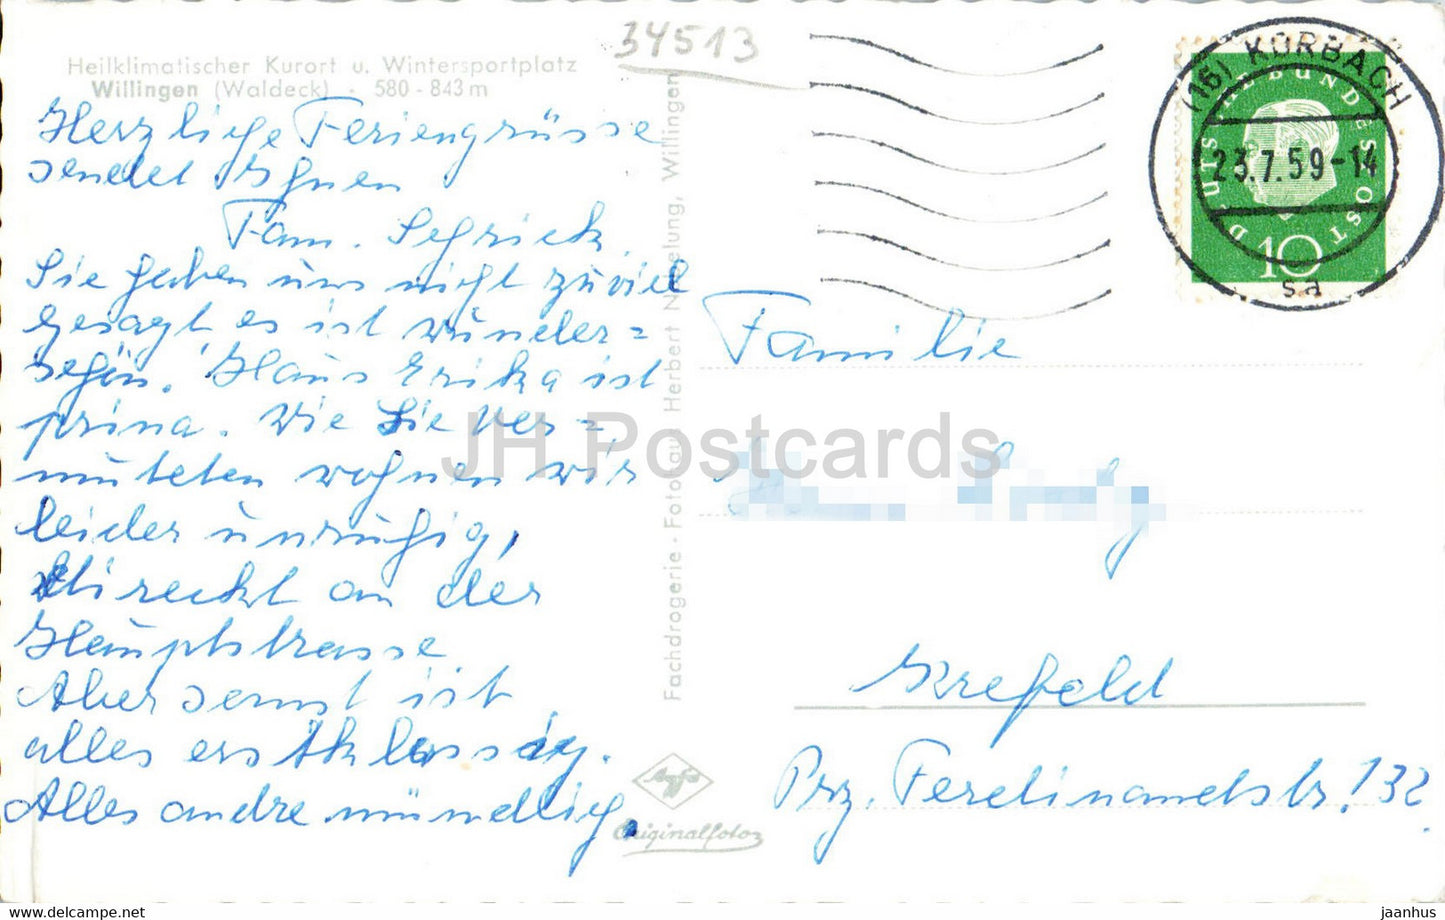 34513
Heilklimatischer Kurort u. Wintersportplatz
Willingen (Waldeck) · 580 - 843 m
Herzliche Feriengrüsse
sendet Ihnen
Fam. Sechrick.
Sie haben uns nicht zuviel
gesagt, es ist wunder=
schön. Haus Erika ist
prima. Wie Sie ver=
muteten wohnen wir
leider unruhig,
direckt an der
Hauptstrasse.
Aber sonst ist
alles erstklassig.
Alles andre mündlich.
Fachdrogerie - Fotohaus Herbert Willingen, Willingen
(16) KORBACH
23.7.59-14
sa
DEUTSCHE BUNDESPOST
10
Familie
Krefeld
Prz. Ferdinandstr. 132
Agfa
Originalfoto
JH Postcards
jaanhus
www.delcampe.net